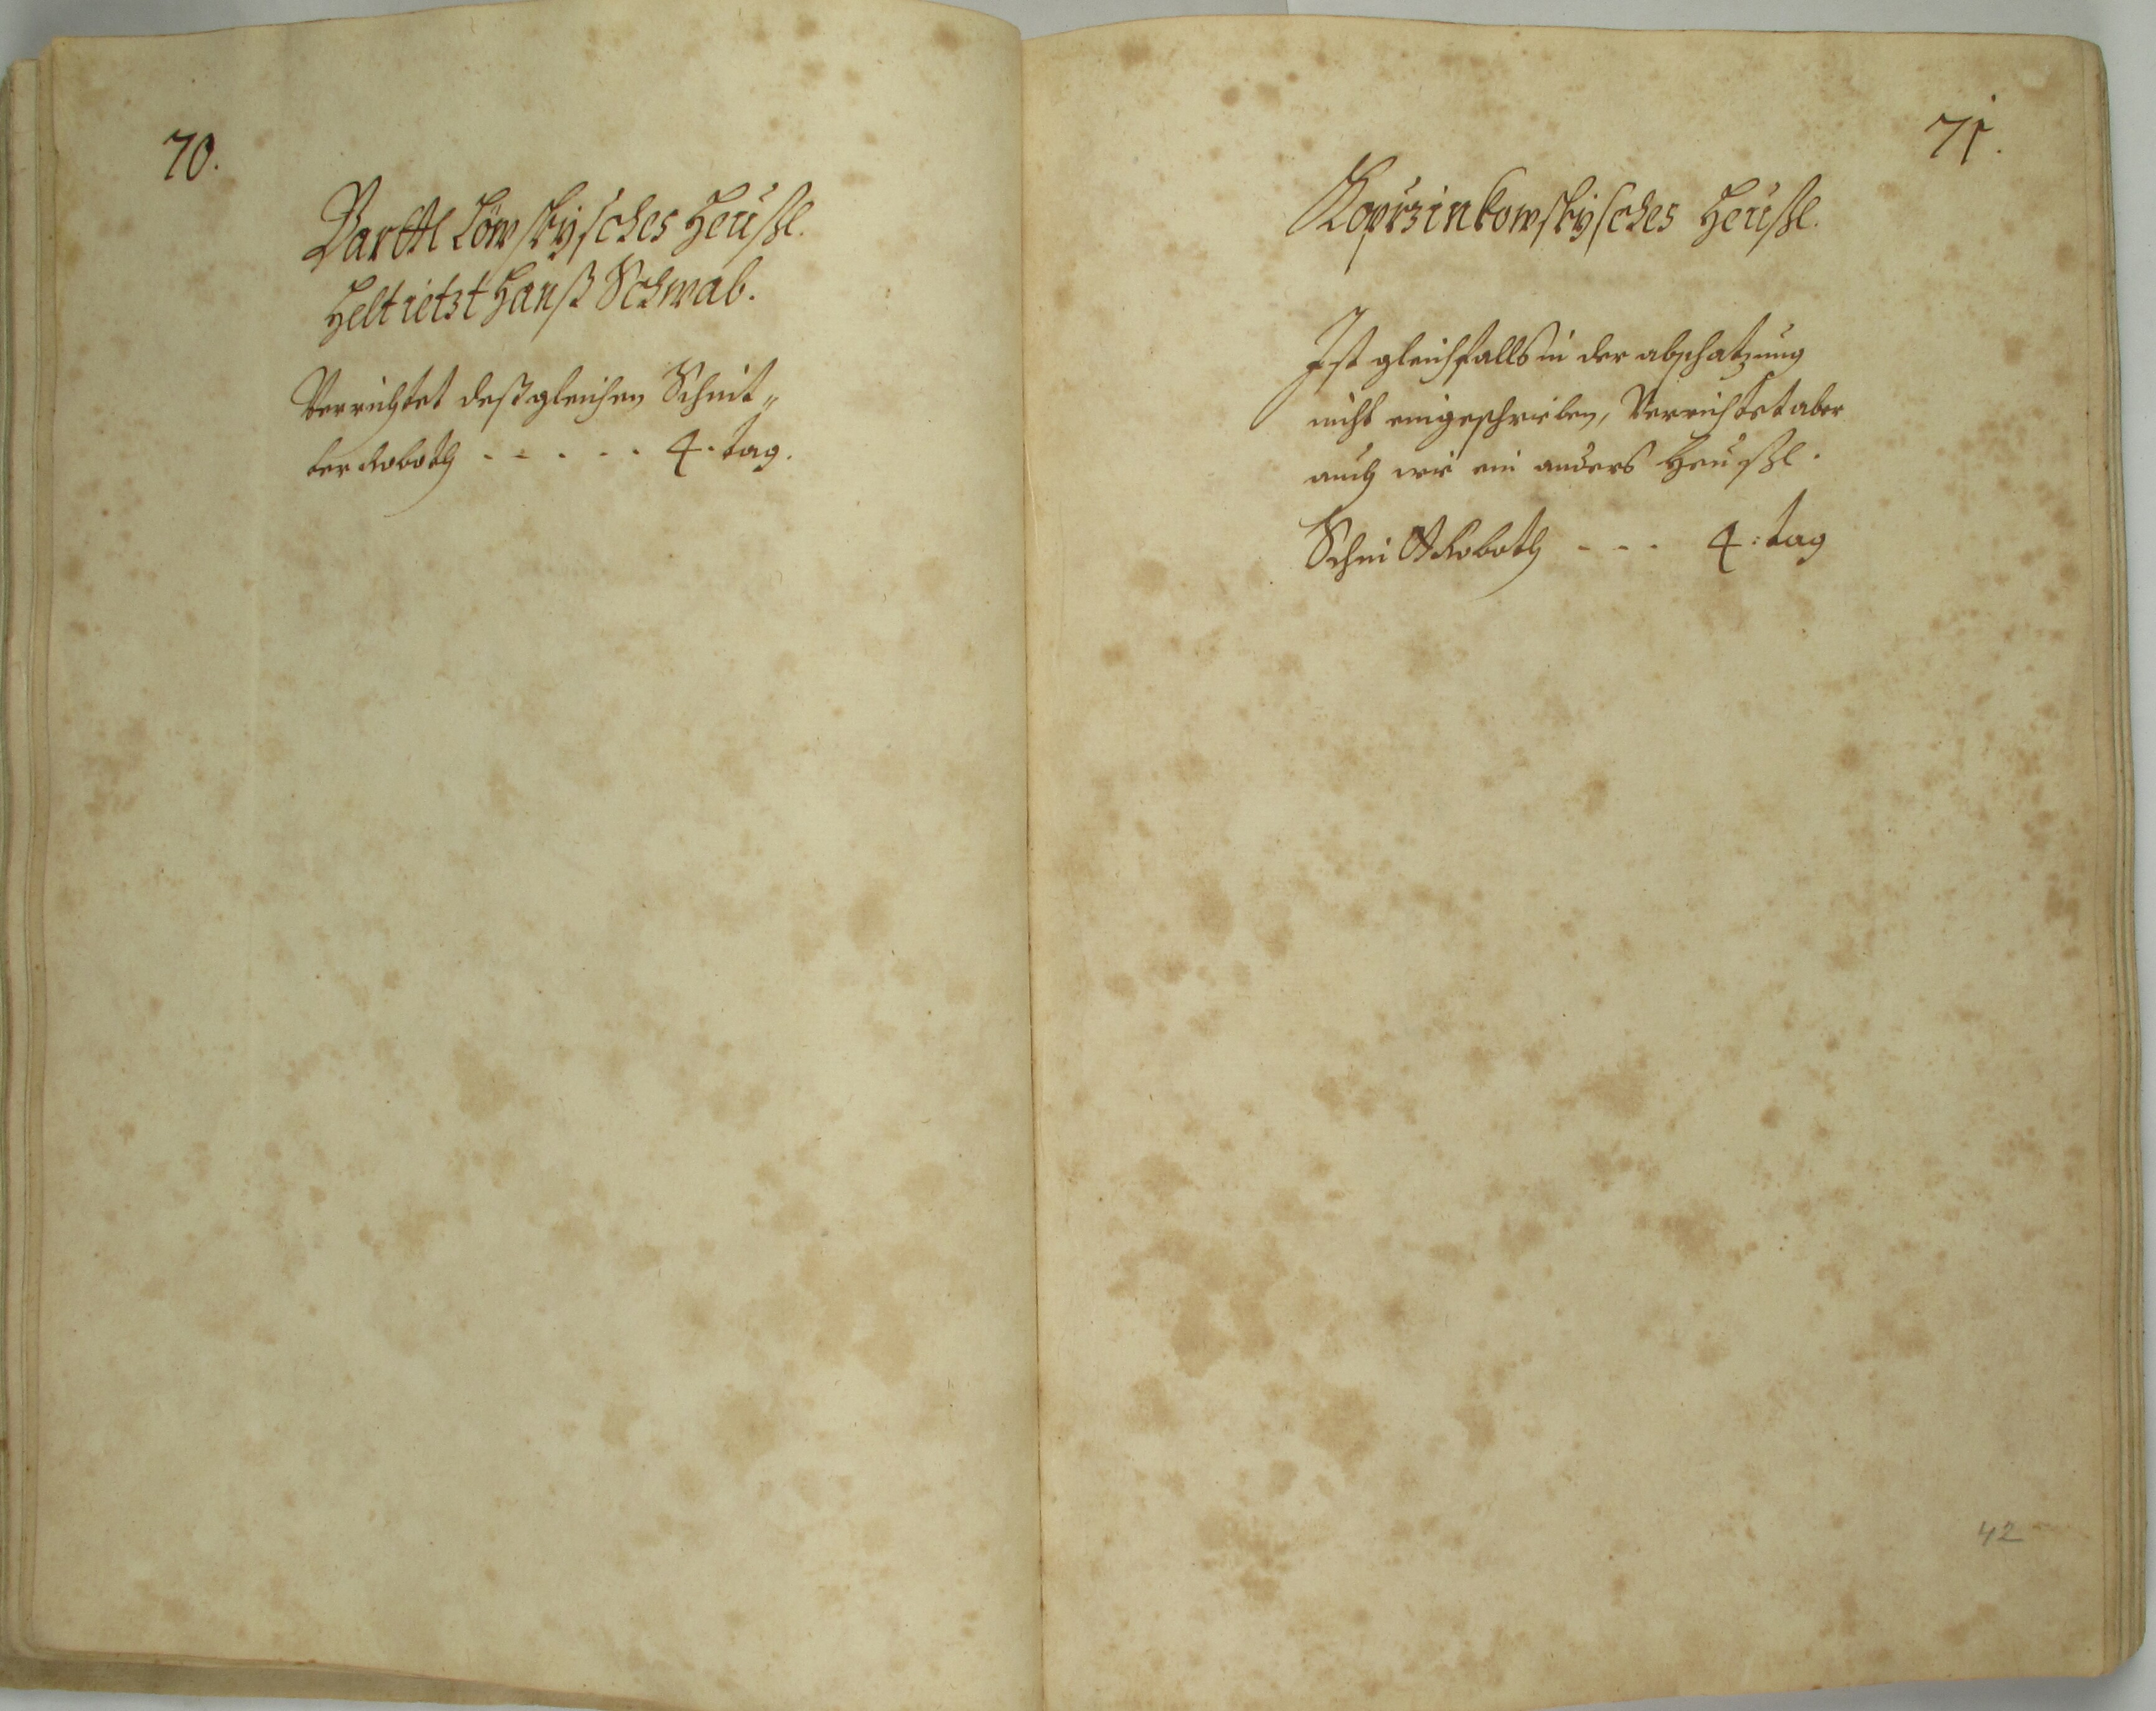 70.
Barttl Löwskÿsches Heußl.
Helt ietzt Hanß Schwab.
Verrichtet deßgleichen Schnit„
ter Roboth - - - - - 4. tag.
71.
Koprzinkowskÿsches Heußl.
Ist gleichfalls in der abschatzung
nicht eingeschrieben, Verrichtet aber
auch wie ein anders Heußl.
Schnitt Roboth - - - 4: tag
42